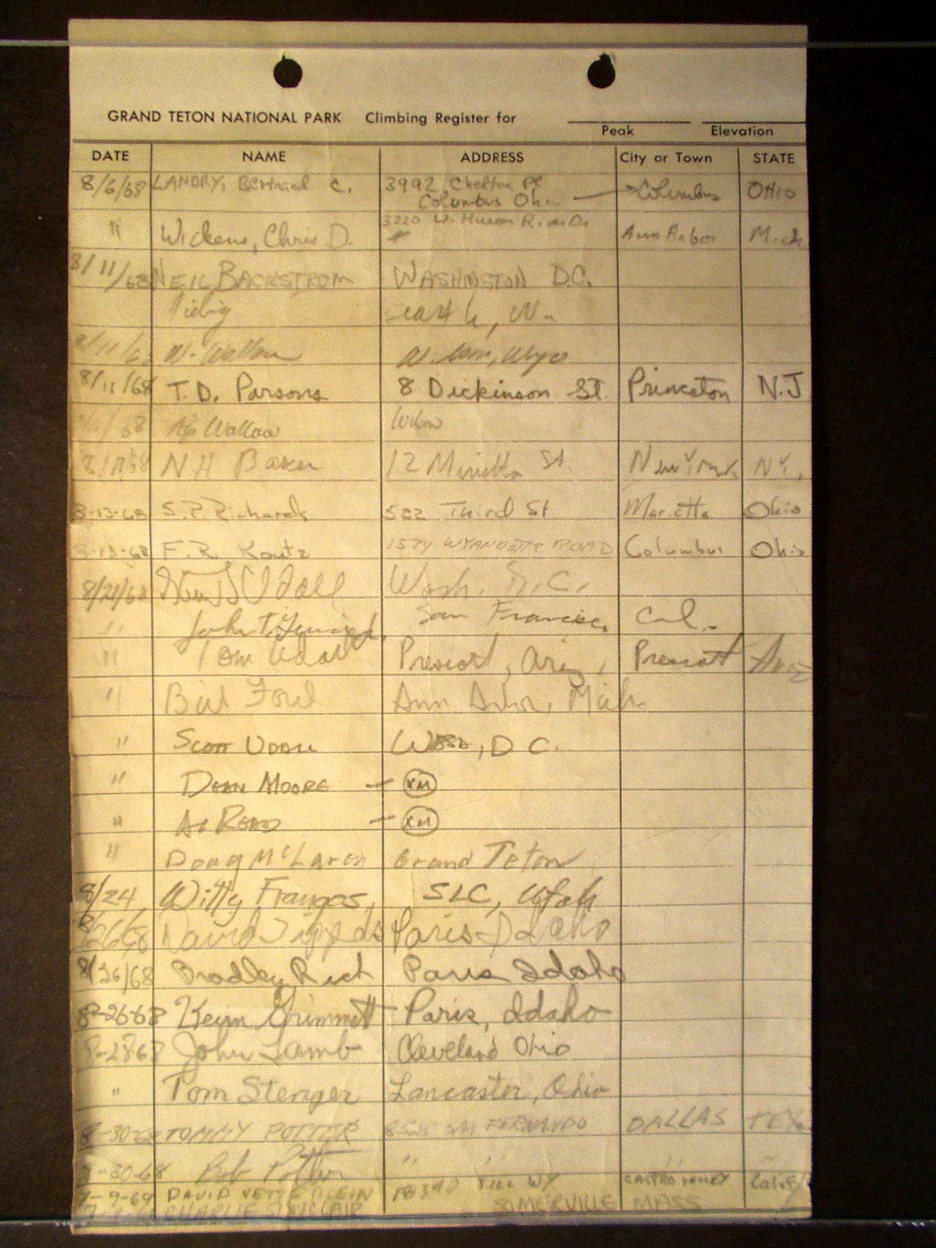 GRAND TETON NATIONAL PARK Climbing Register for
Peak Elevation
DATE NAME ADDRESS City or Town STATE
8/6/68 LANDRY, Bertrand C. 3992 Chelton Pl Columbus OHIO
Columbus Ohio
" Wickens, Chris D. 3220 W. Huron Ann Arbor Mich
8/11/68 NEIL BACKSTROM WASHINGTON D.C.
W. Wallace Wyo
8/11/68 T. D. Parsons 8 Dickinson St. Princeton N.J
Wallace
N H Baker 12 Minetta St. New York N.Y.
8-13-68 S.P. Richards 522 Third St Marietta Ohio
8-13-68 F.R. Koutz 1579 WYANDOTTE ROAD Columbus Ohio
8/21/68 Wash. D.C.
" John T. San Francisco Cal.
" Tom Udall Prescott, Ariz, Prescott Ariz
" Bill Ford Ann Arbor, Mich.
" SCOTT UDALL WASH, D C.
" DEAN MOORE — XM
" Al READ — XM
" Doug McLaren Grand Teton
8/24 Witty Frangos, SLC, Utah
8/26/68 David Paris Idaho
8/26/68 Bradley Rich Paris Idaho
8-26-68 Kevin Grimmett Paris, Idaho
8-28-68 John Lamb Cleveland Ohio
" Tom Stenger Lancaster, Ohio
8-30-68 TOMMY POTTER SAN FERNANDO DALLAS TEX
8-30-68 Bob Potter " " "
7-9-69 DAVID VETTERLEIN 18390 HILL WY CASTRO VALLEY Calif
CHARLIE SINCLAIR SOMERVILLE MASS